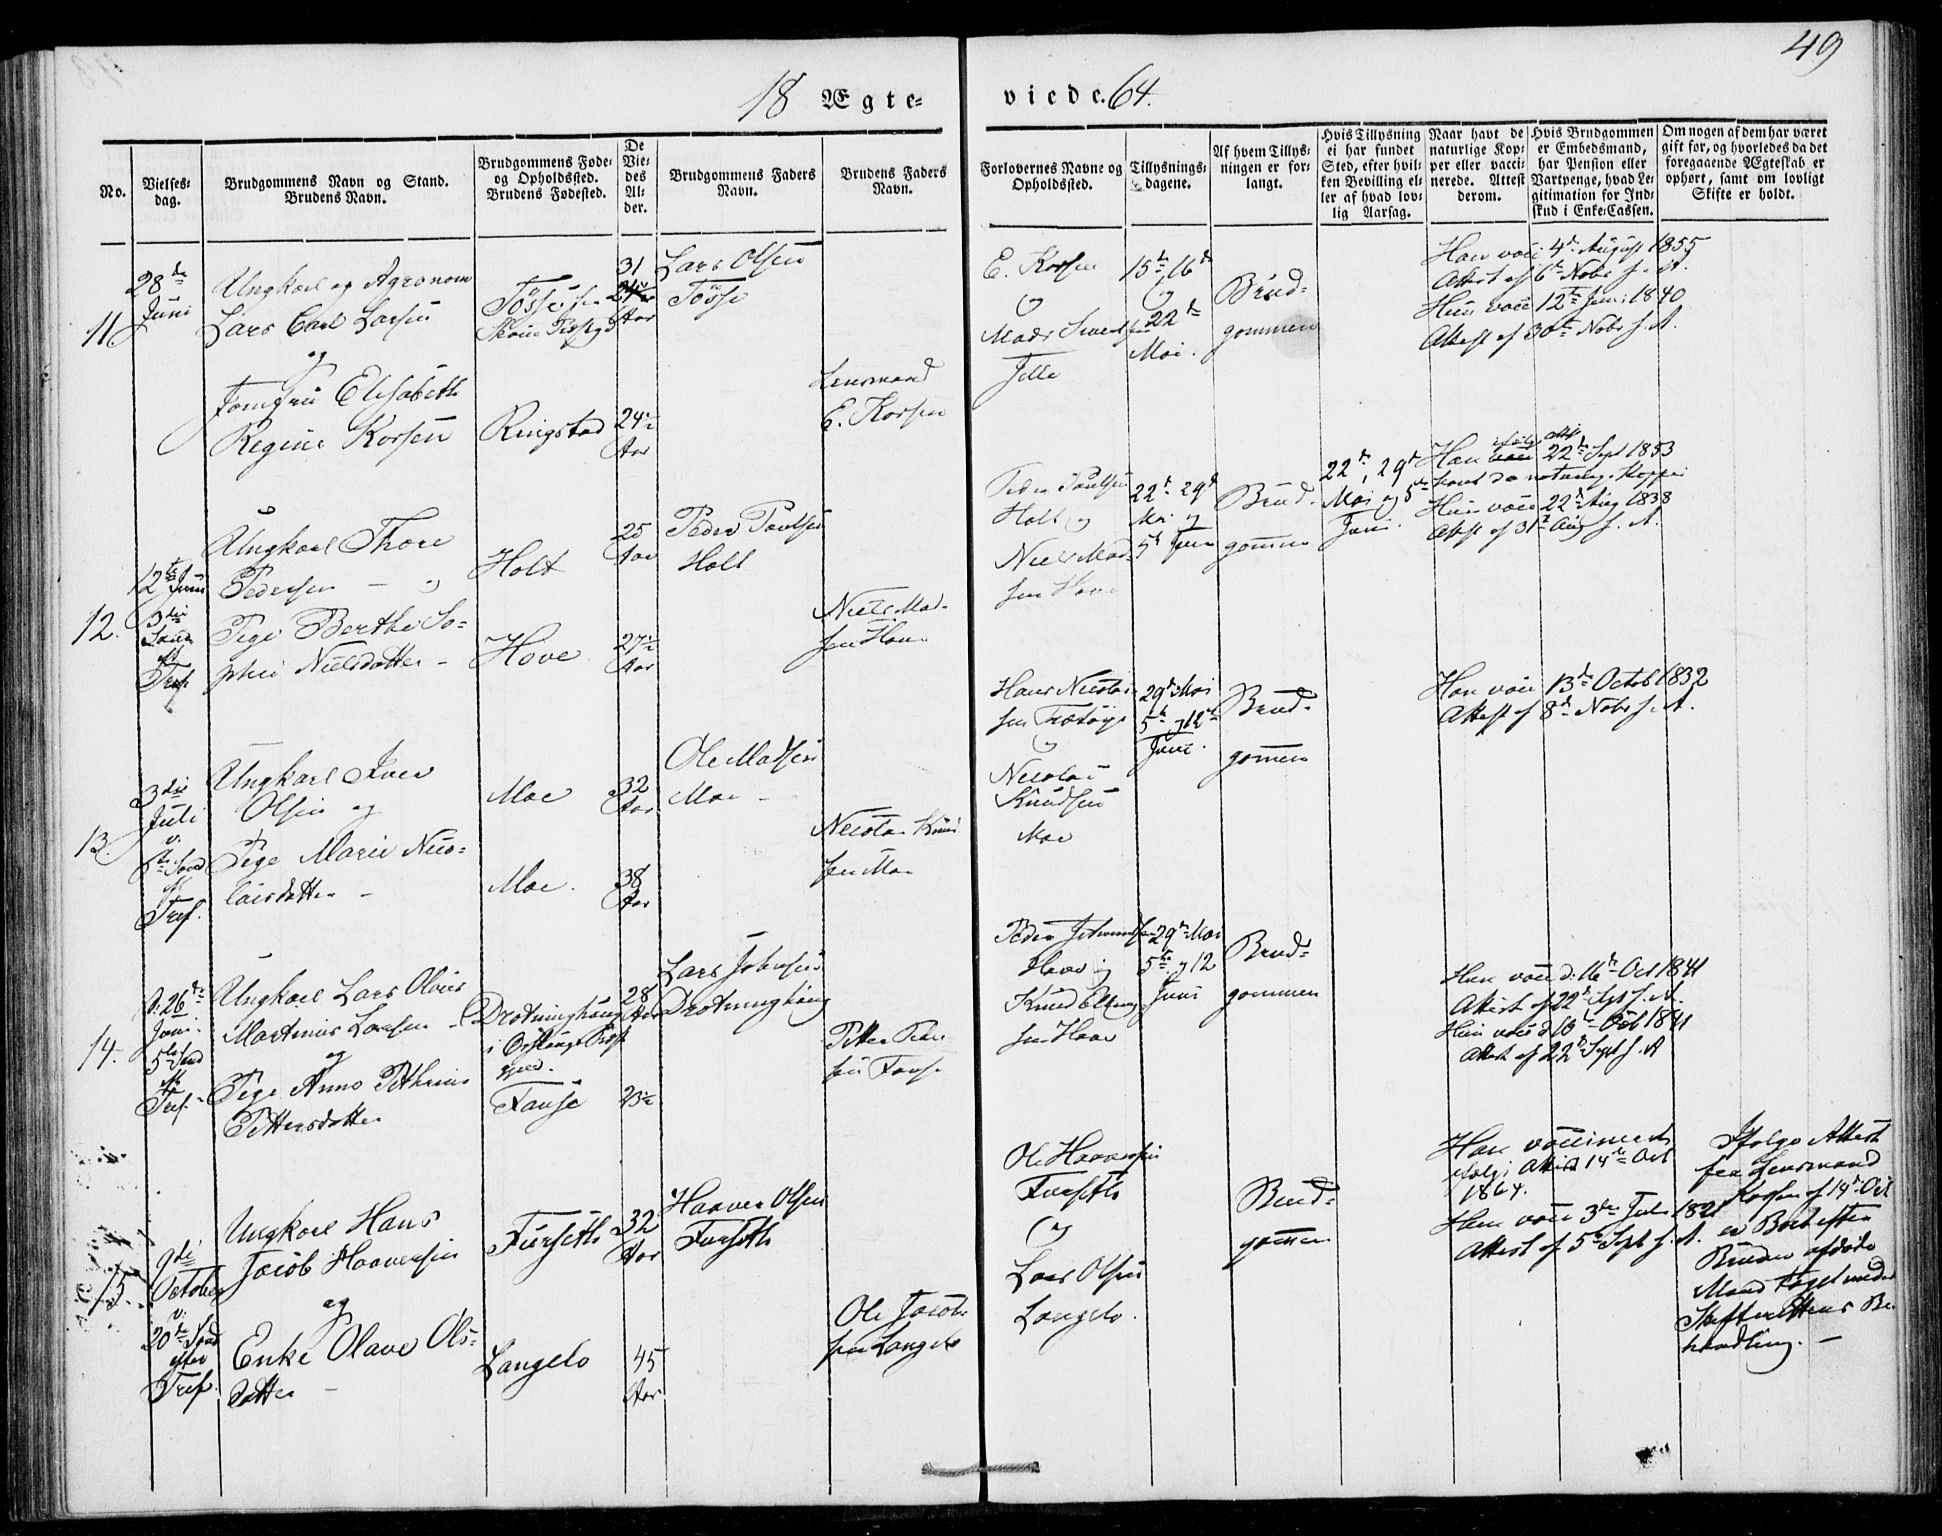 49
18 Ægte-
viede. 64.
No.
Vielses-
dag.
Brudgommens Navn og Stand.
Brudens Navn.
Brudgommens Føde-
og Opholdssted.
Brudens Fødested.
De
Vie-
des
Al-
der.
Brudgommens Faders
Navn.
Brudens Faders
Navn.
Forlovernes Navne og
Opholdssted.
Tillysnings-
dagene.
Af hvem Tillys-
ningen er for-
langt.
Hvis Tillysning
ei har fundet
Sted, efter hvil-
ken Bevilling el-
ler af hvad lov-
lig Aarsag.
Naar havt de
naturlige Kop-
per eller vacci-
nerede. Attest
derom.
Hvis Brudgommen
er Embedsmand,
har Pension eller
Vartpenge, hvad Le-
gitimation for Ind-
skud i Enke-Cassen.
Om nogen af dem har været
gift før, og hvorledes da det
foregaaende Ægteskab er
ophørt, samt om lovligt
Skifte er holdt.
11
28de
Juni
Ungkarl og Agronom
Lars Carl Larsen
og
Jomfru Elisabeth
Regine Korsen
Ringstad
31
Aar
24½
Aar
Lars Olsen
Lensmand
E. Korsen
E. Korsen
og
Mads
15de, 16de
og
22de
Mai.
Brud-
gommen
Han vacc 4de August 1855
Attest af 6te Nobr s. A.
Hun vacc 12te Juni 1840
Attest af 30te Nobr s. A.
12.
12te Juni
3die
Sønd
eft
Tref
Ungkarl Thore
Pedersen — og
Pige Berthe So-
phie Nielsdatter -
Holt
Hove
25
Aar
27½
Aar
Peder Paulsen
Holt
Niels Mad-
sen Hove
Peder Paulsen
Holt og
Niels Mad-
sen Hove
22de 29de
Mai og
5te Juni
Brud-
gommen
22de, 29de
Mai og 5te
Juni.
Han 22de Sept 1853
havt de naturlig. Kopper
Hun vacc 22de Aug 1838
Attest af 31te Aug s. A.
13.
3die
Juli
6te Sønd
eft
Tref.
Ungkarl Iver
Olsen og
Pige Marie Nico-
laisdatter -
Moe
Moe.
32
Aar
38
Aar
Ole Madsen
Moe -
Nicolai Knud
sen Moe
Hans Nicolai-
sen
og
Nicolai
Knudsen
Moe
29de Mai
5te og 12te
Juni.
Brud-
gommen
Han vacc 13de Octob 1832
Attest af 8de Nobr s. A.
14.
d. 26de
Juni.
5te Sønd
eft
Tref.
Ungkarl Lars Olaus
Martinus Larsen -
og
Pige Anne Pethrine
Pettersdatter
Drotninghaug
i Ørskougs Præst
gjeld.
Fauske
28
Aar
23½
Lars Johnsen
Drotninghaug
Petter Peder
sen
Peder
Hove og
Knud Elling-
sen Hove
29de Mai
5te og 12
Juni
Brud-
gommen
Han vacc d. 16de Oct 1841
Attest af 22de Sept s. A.
Hun vacc d 10de Oct 1841
Attest af 22de Sept s. A
15.
9de
October
v.
20de Sønd
efter
Tref.
Ungkarl Hans
Jacob Haaversen
og
Enke Olave Ols-
datter -
Furseth
Langelo
32
Aar
45
Aar
Haaver Olsen
Furseth
Ole Jacob-
sen Langelo
Ole Haaversen
Furseth
og
Lars Olsen
Langelo.
Brud-
gommen
Han vaccineret
ifølge Attest 14de Oct
1864.
Hun vacc 3die Juli 1821
Attest af 5te Sept s. A.
Ifølge Attest
fra Lensmand
Korsen af 14de Oct
er Boet efter
Bruden afdøde
Mand taget under
Skifterettens Be-
handling. —